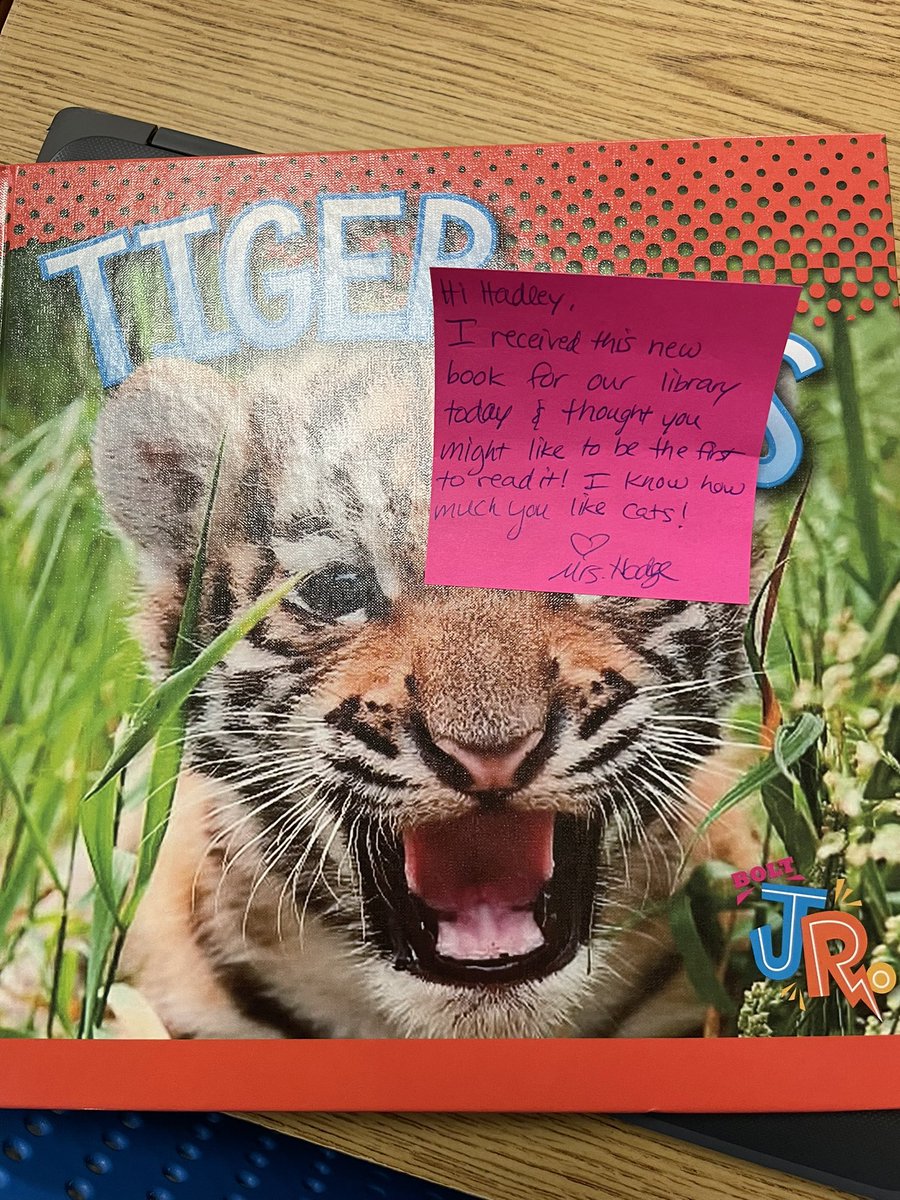 TIGER
S
Hi Hadley,
I received this new
book for our library
today & thought you
might like to be the first
to read it! I know how
much you like cats!
♡
Mrs. Hodge
BOLT
JR